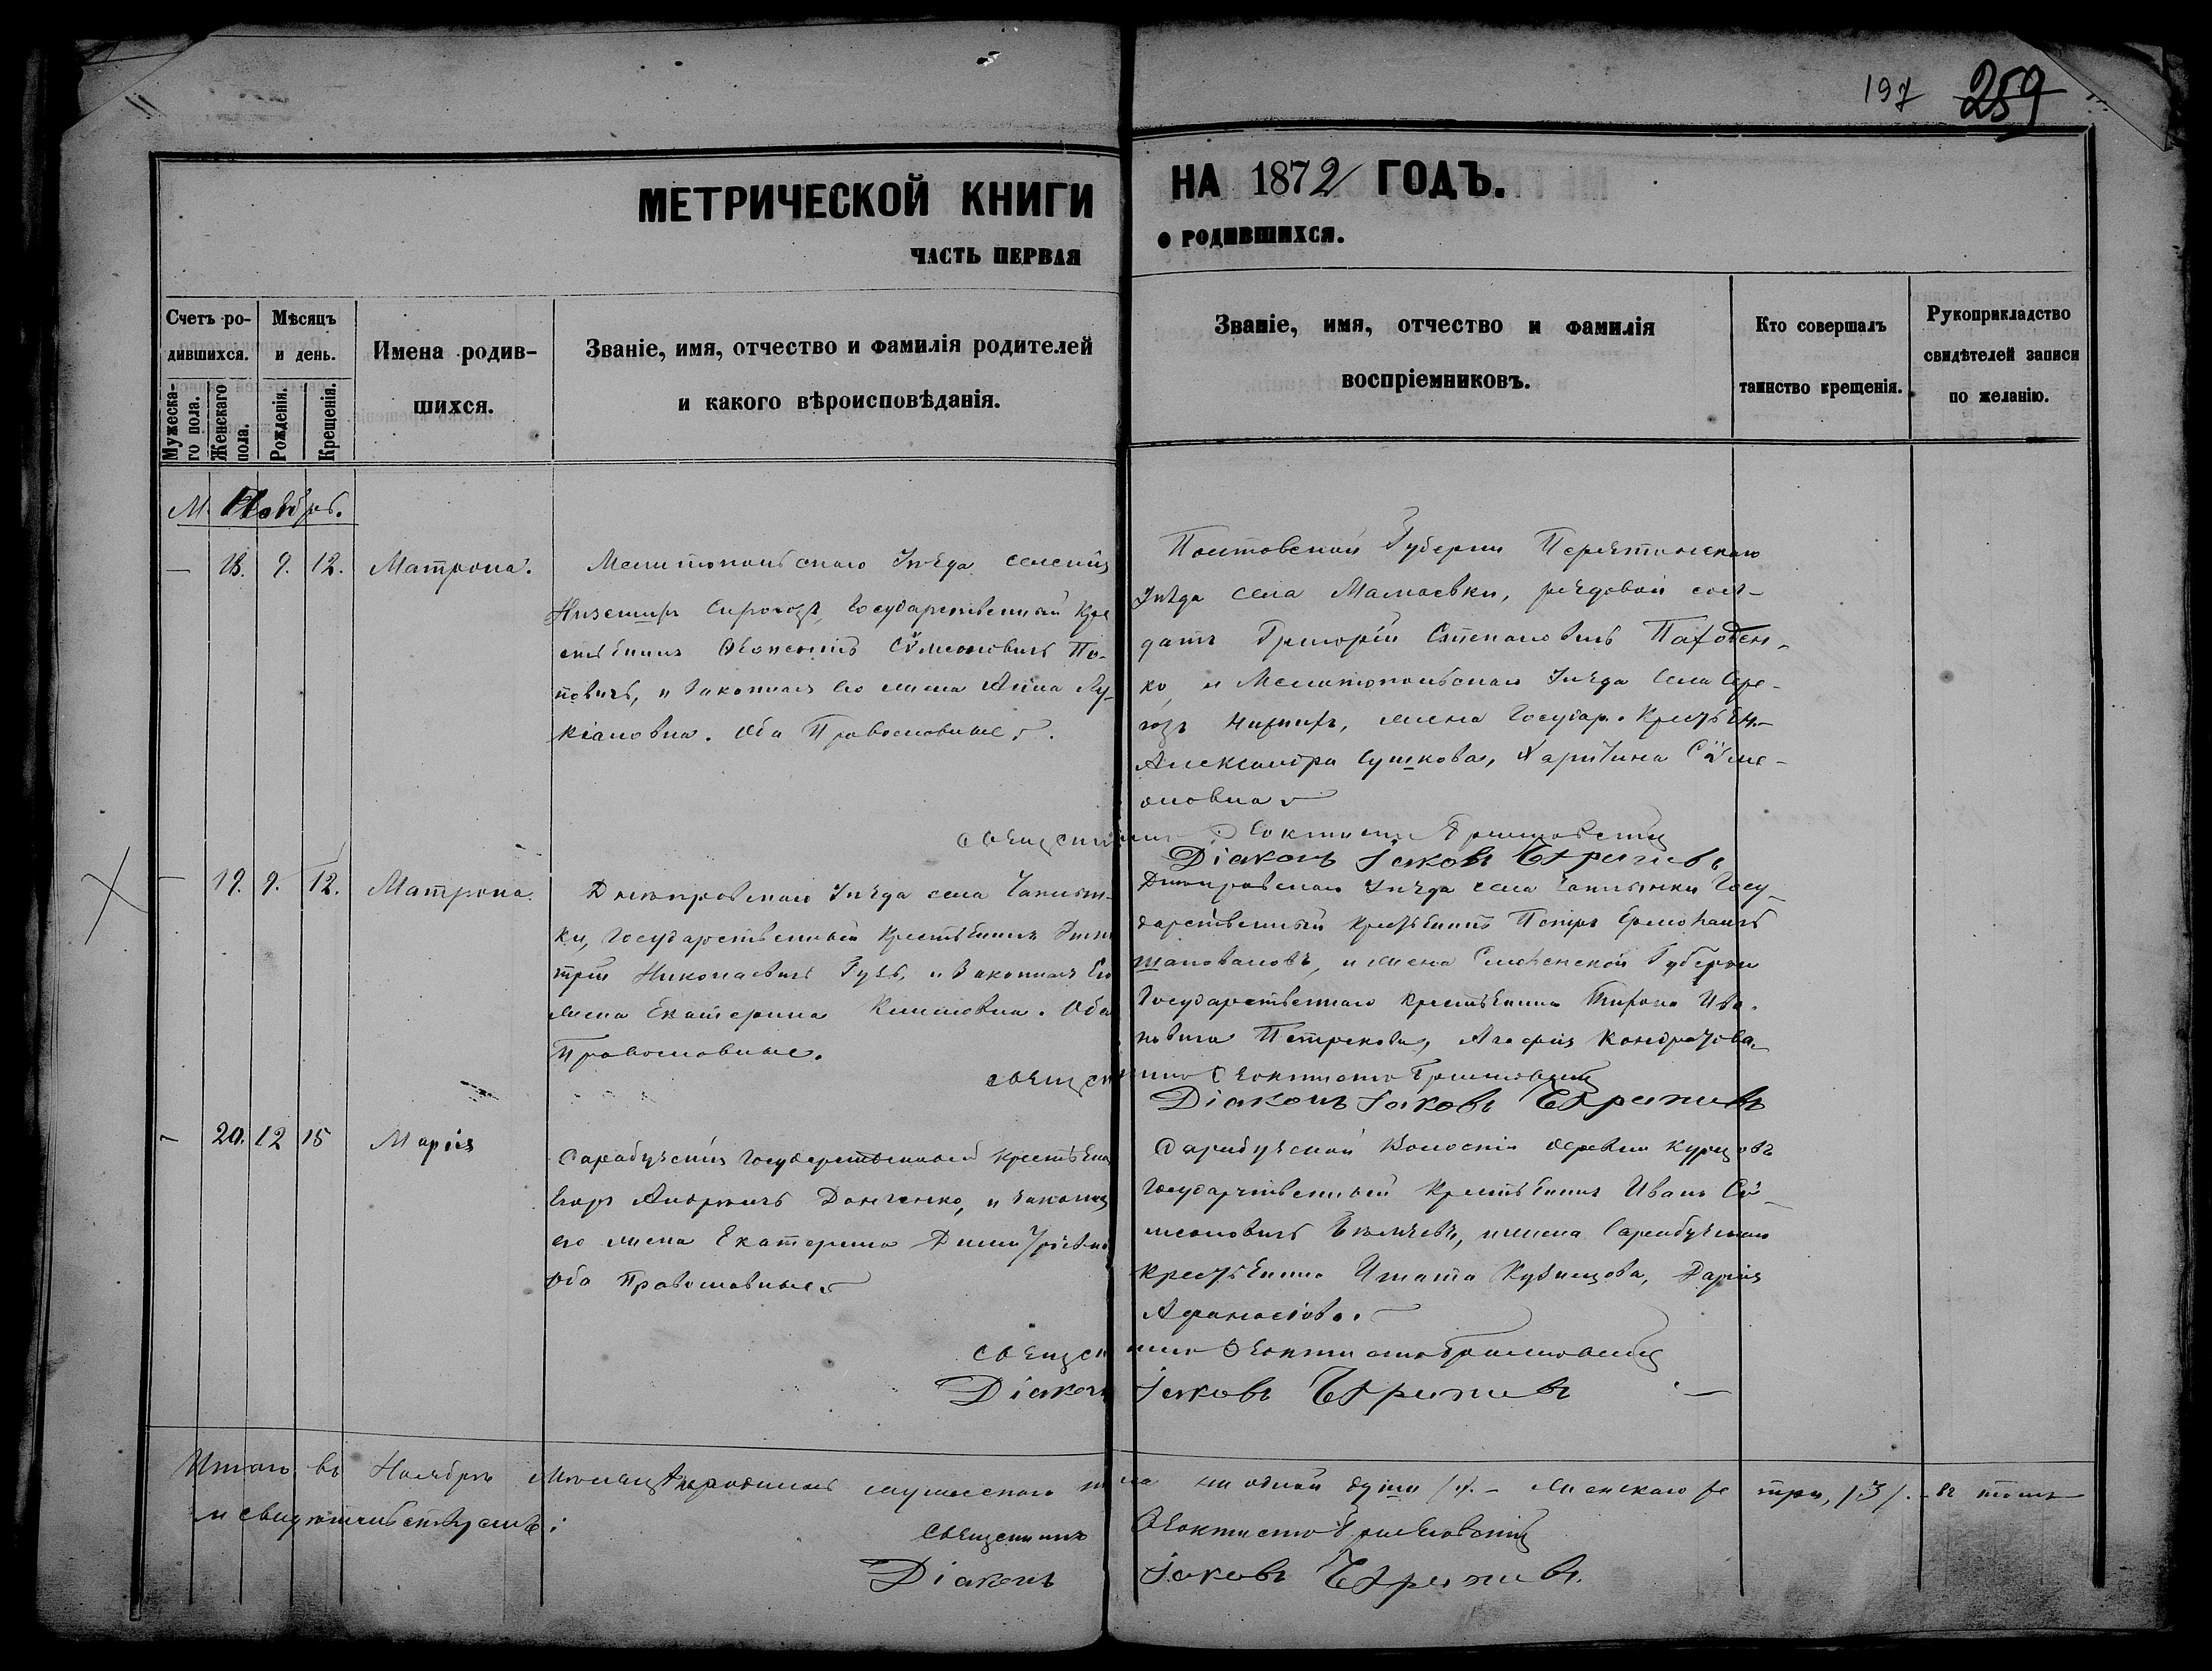 197 259
МЕТРИЧЕСКОЙ КНИГИ НА 1872 ГОДЪ.
ЧАСТЬ ПЕРВАЯ О РОДИВШИХСЯ.
Счетъ ро-
дившихся.
Мужеска-
го пола.
Женскаго
пола.
Мѣсяцъ
и день.
Рожденія.
Крещенія.
Имена родив-
шихся.
Званіе, имя, отчество и фамилія родителей
и какого вѣроисповѣданія.
Званіе, имя, отчество и фамилія
воспріемниковъ.
Кто совершалъ
таинство крещенія.
Рукоприкладство
свидѣтелей записи
по желанію.
М. Ноябрь.
— 18. 9. 12. Матрона.
Мелитопольскаго Уѣзда селенія
Государственный Кре
Сѵмеоновичъ По-
повичъ, и законная его жена Анна Лу-
кіановна. Оба Православные.
Полтавской Губерніи Пирятинскаго
Уѣзда села Мамаевки, рядовой сол-
датъ Григорій Степановичъ
ко, и Мелитопольскаго Уѣзда села Сѣре-
гозъ жена Государ. Крестьян.
Александра Сушкова, Харитина Сѵме-
оновна
Священникъ Ѳеоктистъ
Діаконъ Іаковъ
— 19. 9. 12. Матрона.
Днѣпровскаго Уѣзда села Чаплин-
ки, Государственный Крестьянинъ Дими
трій Николаевичъ Гузь, и Законная Его
жена Екатерина Оба
Православные.
Днѣпровскаго Уѣзда села Чаплинки Госу-
дарственный Крестьянинъ Петръ
Шаповаловъ, и жена Смоленской Губерніи
Государственнаго крестьянина Тихона Ива-
новича Петрикова, Агафія Кондратова.
Священникъ Ѳеоктистъ
Діаконъ Іаковъ
— 20. 12 15 Марія
Сарабузскій Государственный крестьянинъ
Егоръ Андреичъ Донченко, и законная
его жена Екатерина Димитріевна
Оба Православные
Сарабузской Волости деревни Курцовъ
Государственный Крестьянинъ Иванъ Сѵ-
меоновичъ и жена Сарабузскаго
Крестьянина Игната Кузнецова, Дарія
Афанасіева.
Священникъ Ѳеоктистъ
Діаконъ Іаковъ
Итого въ Ноябрѣ Мѣсяцѣ родилось мужескаго пола ни одной души — Женскаго три, /3/. — въ томъ
и свидѣтельствуемъ:
Священникъ Ѳеоктистъ
Діаконъ Іаковъ